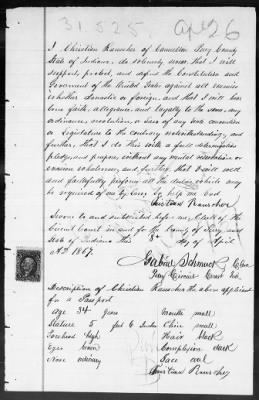 31525 Apl 26
I Christian Rauscher of Cannelton Perry County
State of Indiana, do solemnly swear that I will
support, protect, and defend the Constitution and
Government of the United States against all enemies
whether domestic or foreign, and that I will bear
true faith, allegiance, and loyalty to the same, any
ordinance, resolution, or laws of any State convention
or legislature to the contrary notwithstanding, and
further, that I do this with a full determination
pledge, and purpose, without any mental reservation or
evasion whatsoever, and further, that I will well
and faithfully perform all the duties which may
be required of me by law, So help me God
Christian Rauscher
Sworn to and subscribed before me, Clerk of the
Circuit Court in and for the County of Perry, and
State of Indiana this 8th day of April
AD 1867.
Gabriel Schmuck Clerk
Perry Circuit Court Ind.
Description of Christian Rauscher the above applicant
for a Passport
age 34 years Mouth small
Stature 5 feet 6 Inches Chin small
Forehead high Hair black
Eyes brown Complexion dark
Nose ordinary Face oval
Christian Rauscher